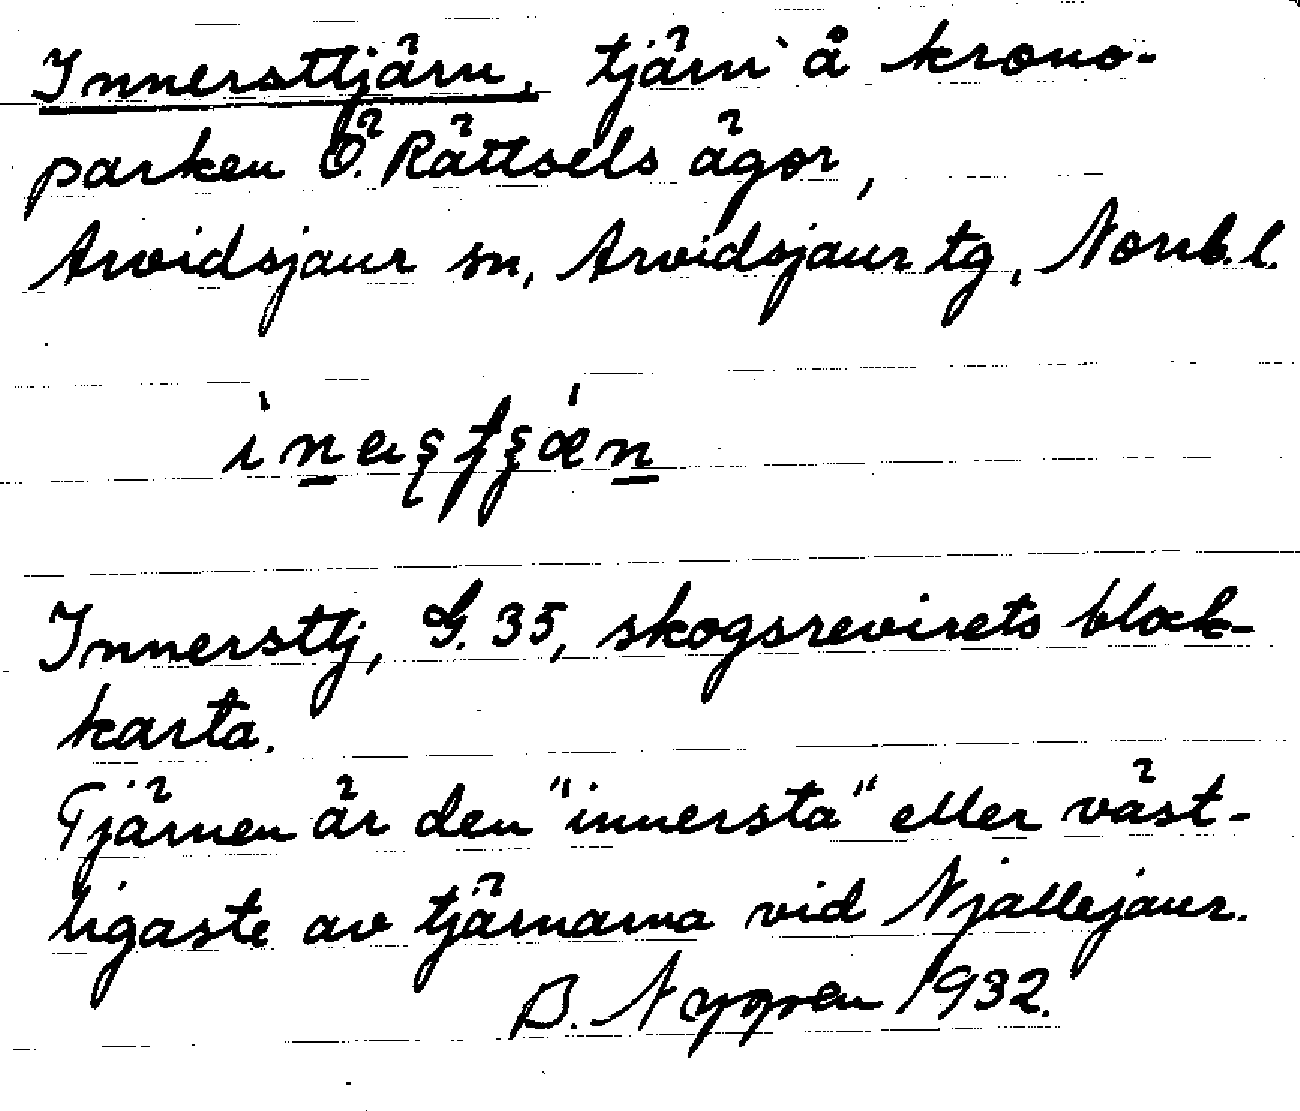 Innersttjärn, tjärn å krono-
parken Ö. Rättsels ägor,
Arvidsjaur sn, Arvidsjaur tg, Norrb.l.
Innersttj, G. 35, skogsrevirets block-
karta.
Tjärnen är den "innersta" eller väst-
ligaste av tjärnarna vid Njallejaur.
B. Nygren 1932.